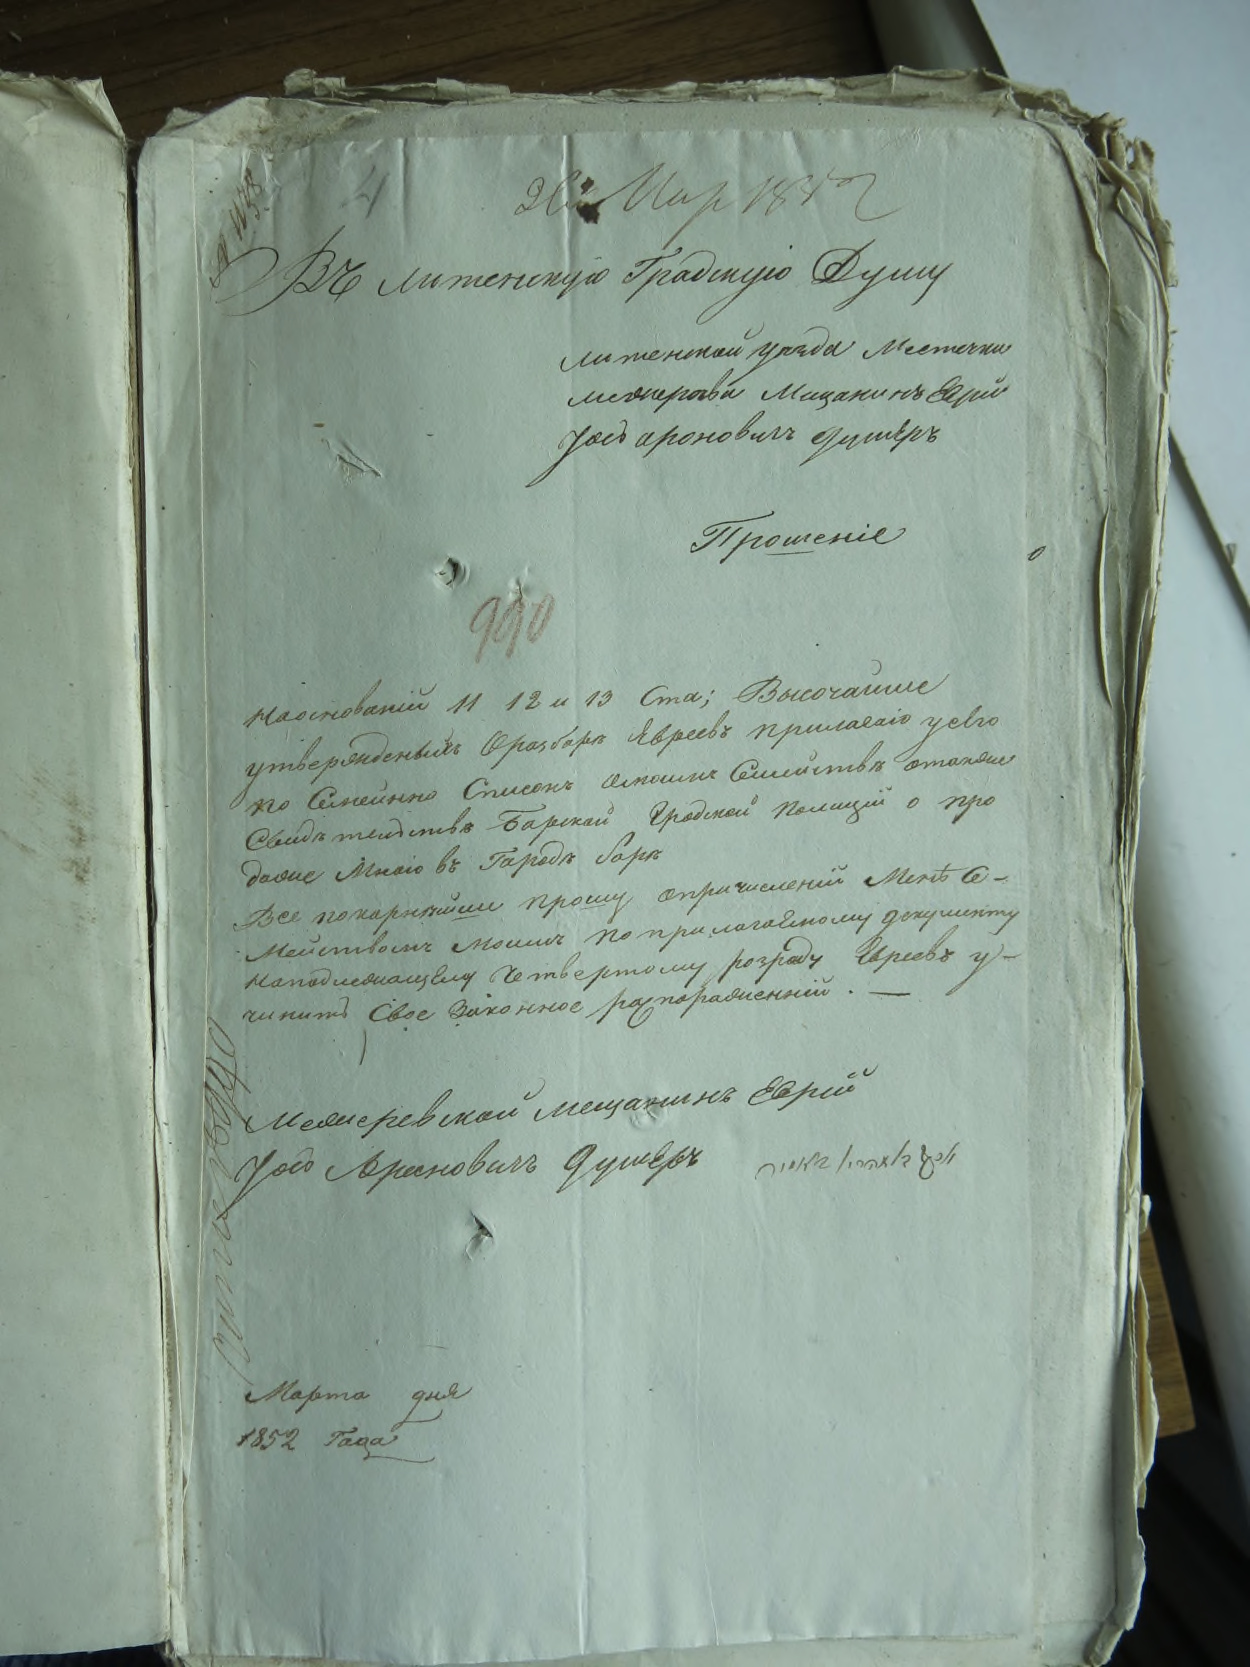 № 1178
4
26 Мар 1852
Въ литенскую Градскую Думу
литенскай уезда Местечки
межерова Мищанинъ Еврий
Іось ароновичъ душеръ
Прошеніе
990
Наоснованій 11 12 и 13 Ста; Высочайше
утвержденыхъ Оразборе Явреевъ прилагаю усего
по Семейно Списокъ омоимъ Семействе отакже
Свидетелдстве Барскай Градской полицій о про
даже Мною въ Городе баре
Все покорнейши прошу опричислений Мене Се-
Мействомъ моимъ по прилагаемому документу
Наподлежащему Четвертому розряду Евреевъ у-
чинить Свое Законное распоражений. —
Межеревскай мещанинъ Еврій
Іось Ароновичъ Душеръ
Марта дня
1852 Года